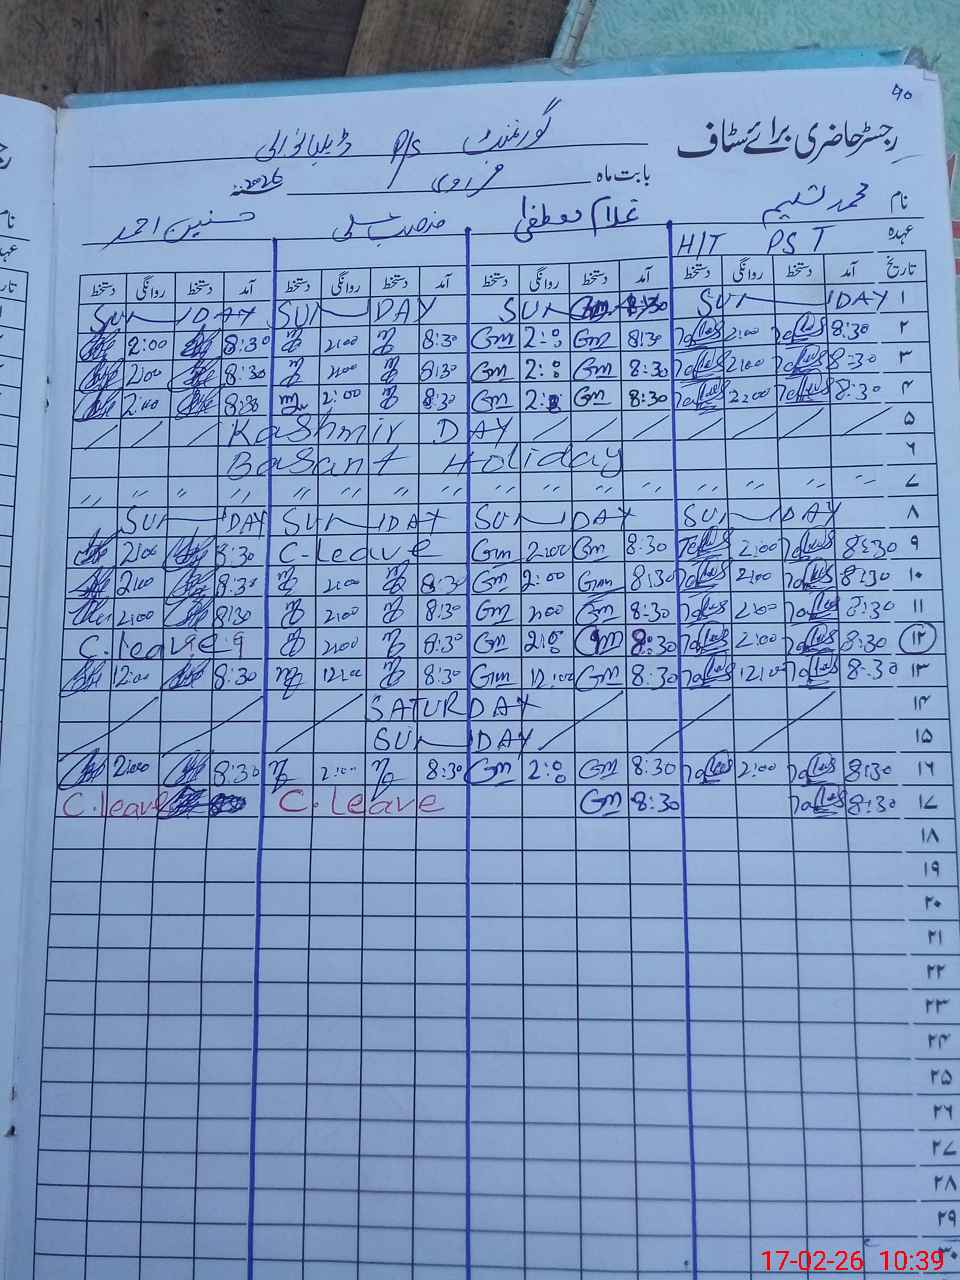 40
رجسٹر حاضری برائے سٹاف
گورنمنٹ P/S
بابت ماہ فروری 2026ء
نام محمد سلیم غلام مصطفیٰ علی حسنین احمد
عہدہ H/T PST
تاریخ آمد دستخط روانگی دستخط آمد دستخط روانگی دستخط آمد دستخط روانگی دستخط آمد دستخط روانگی دستخط
۱ SUNDAY SUN Gm 8:30 SUNDAY SUNDAY
۲ 8:30 2:00 8:30 Gm 2:0 Gm 8:30 2:00 8:30 2:00
۳ 8:30 2:00 8:30 Gm 2:0 Gm 8:30 2:00 8:30 2:00
۴ 8:30 2:00 8:30 Gm 2:0 Gm 8:30 2:00 8:30 2:00
۵ Kashmir DAY
۶ Basant Holiday
۷ " " " " " " " " " " " "
۸ SUNDAY SUNDAY SUNDAY SUNDAY
۹ 8:30 2:00 8:30 Gm 2:00 Gm C-leave 8:30 2:00
۱۰ 8:30 2:00 8:30 Gm 2:00 Gm 8:30 2:00 8:30 2:00
۱۱ 8:30 2:00 8:30 Gm 2:00 Gm 8:30 2:00 8:30 2:00
۱۲ 8:30 2:00 8:30 Gm 2:0 Gm 8:30 2:00 C.leave
۱۳ 8:30 12:00 8:30 Gm 12:00 Gm 8:30 12:00 8:30 12:00
۱۴ SATURDAY
۱۵ SUNDAY
۱۶ 8:30 2:00 8:30 Gm 2:0 Gm 8:30 2:00 8:30 2:00
۱۷ 8:30 8:30 Gm C.leave C.leave
۱۸
۱۹
۲۰
۲۱
۲۲
۲۳
۲۴
۲۵
۲۶
۲۷
۲۸
۲۹
۳۰
17-02-26 10:39